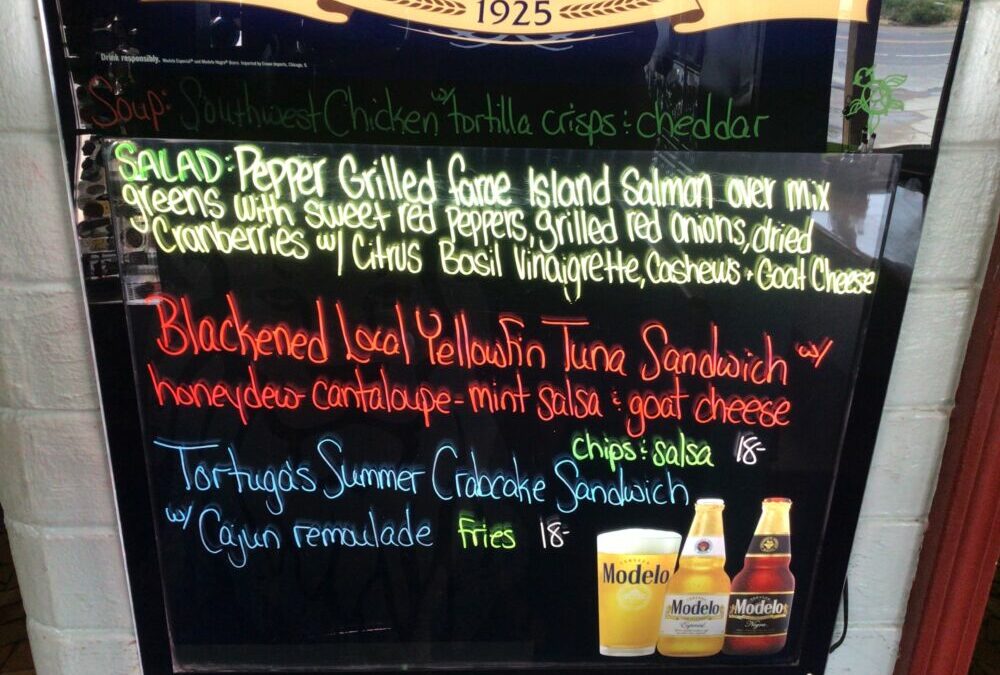 1925
Drink responsibly. Modelo Especial® and Modelo Negra® Beers. Imported by Crown Imports, Chicago, IL
Soup: Southwest Chicken w/ tortilla crisps & cheddar
SALAD: Pepper Grilled faroe Island Salmon over mix
greens with sweet red peppers, grilled red onions, dried
Cranberries w/ Citrus Basil Vinaigrette, Cashews + Goat Cheese
Blackened Local Yellowfin Tuna Sandwich w/
honeydew-cantaloupe-mint salsa & goat cheese
chips & salsa 18-
Tortuga's Summer Crabcake Sandwich
w/ Cajun remoulade Fries 18-
Modelo
Modelo
Especial
Modelo
Negra